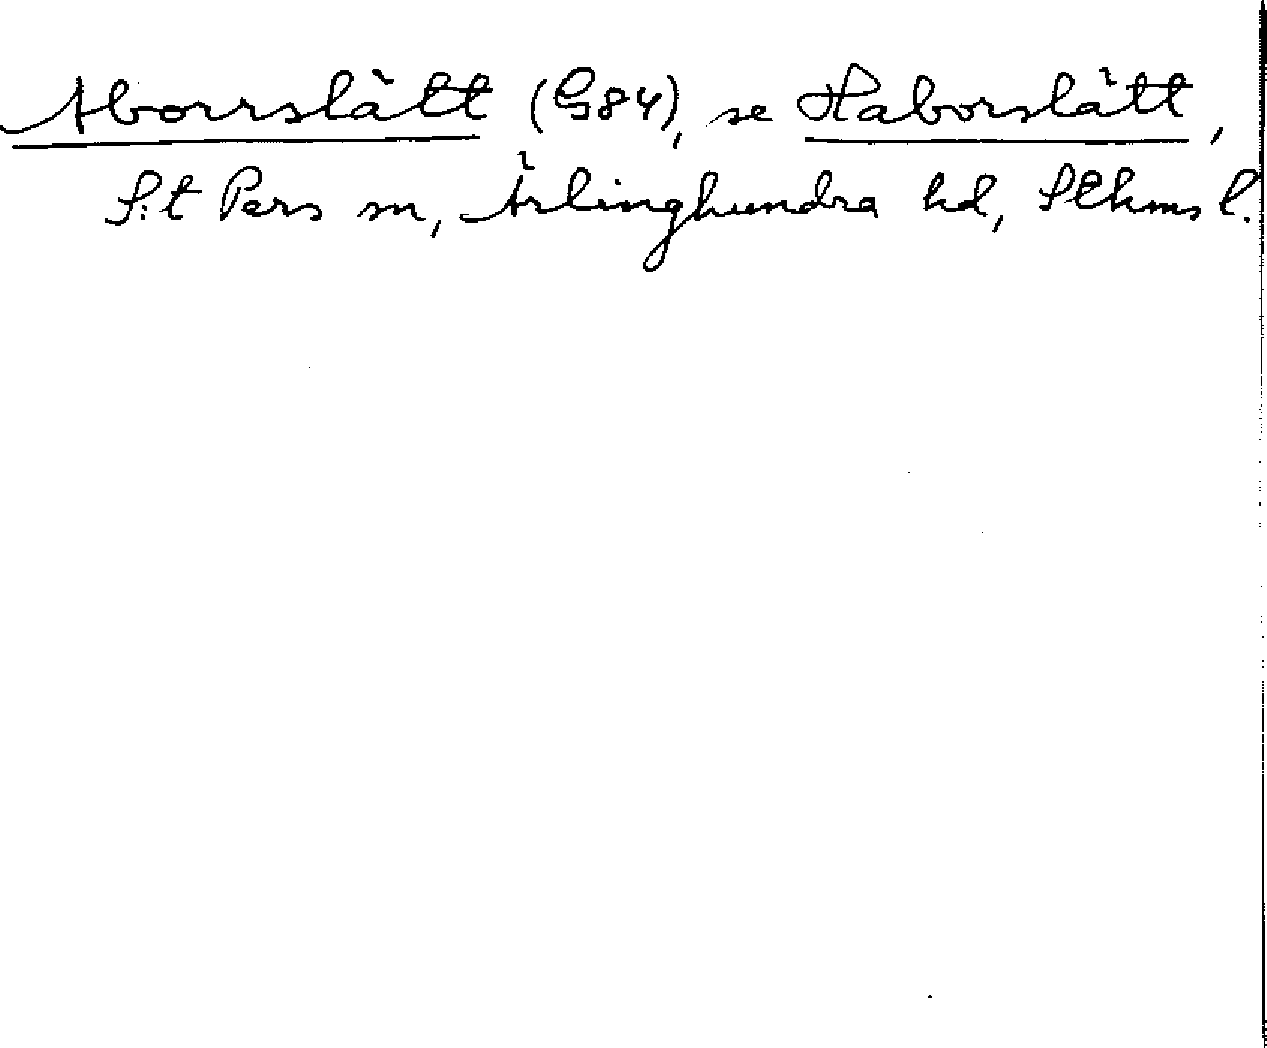 Aborrslätt (G84), se Haborslätt,
S:t Pers sn, Ärlinghundra hd, Sthms l.